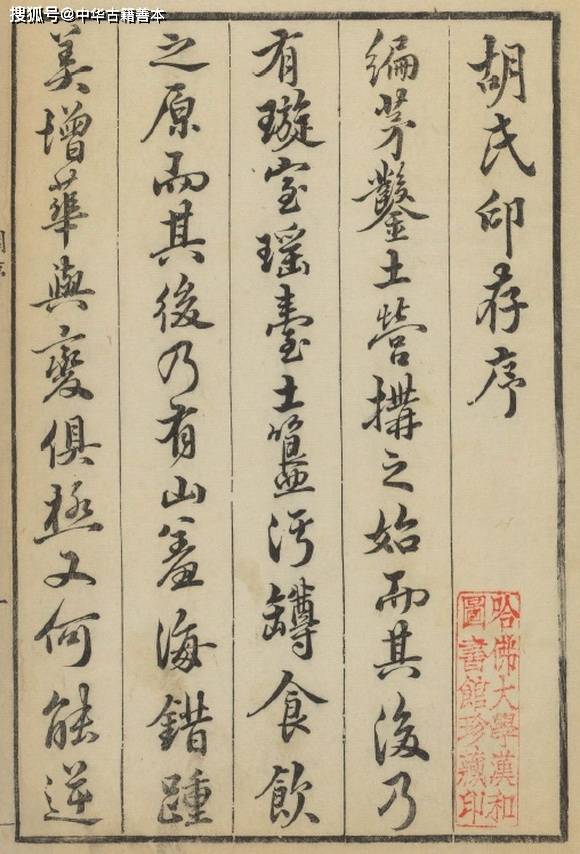 搜狐号@中华古籍善本
胡氏印存序
編茅鑿土營搆之始而其後乃
有璇室瑶臺土簋污罇食飲
之原而其後乃有山羞海錯踵
美增華與變俱極又何能逆
哈佛大學漢和
圖書館珍藏印